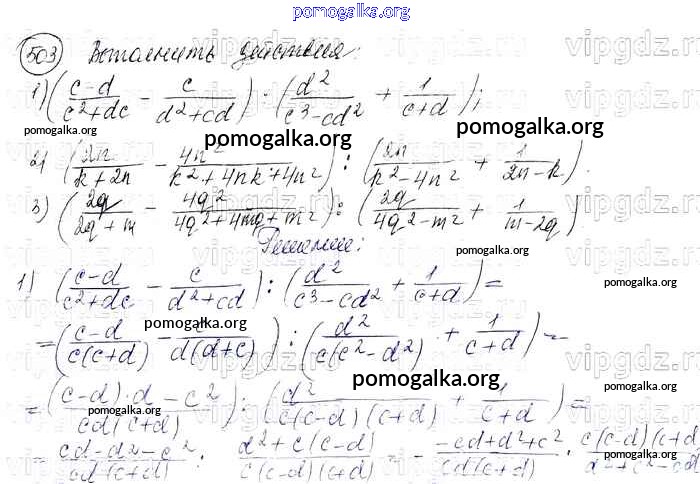 pomogalka.org
503 Выполнить действия:
1) (c-d / c²+dc - c / d²+cd) : (d² / c³-cd² + 1 / c+d);
pomogalka.org pomogalka.org pomogalka.org
2) (2n / k+2n - 4n² / k²+4nk+4n²) : (2n / k²-4n² + 1 / 2n-k).
3) (2q / 2q+m - 4q² / 4q²+4mq+m²) : (2q / 4q²-m² + 1 / m-2q)
Решение:
pomogalka.org
1) (c-d / c²+dc - c / d²+cd) : (d² / c³-cd² + 1 / c+d) =
pomogalka.org
= (c-d / c(c+d) - c / d(d+c)) : (d² / c(c²-d²) + 1 / c+d) =
pomogalka.org
= ((c-d)·d-c² / cd(c+d)) : (d² / c(c-d)(c+d) + 1 / (c+d)) =
pomogalka.org
= cd-d²-c² / cd(c+d) : d²+c(c-d) / c(c-d)(c+d) = - -cd+d²+c² / cd(c+d) · c(c-d)(c+d
vipgdz.ru